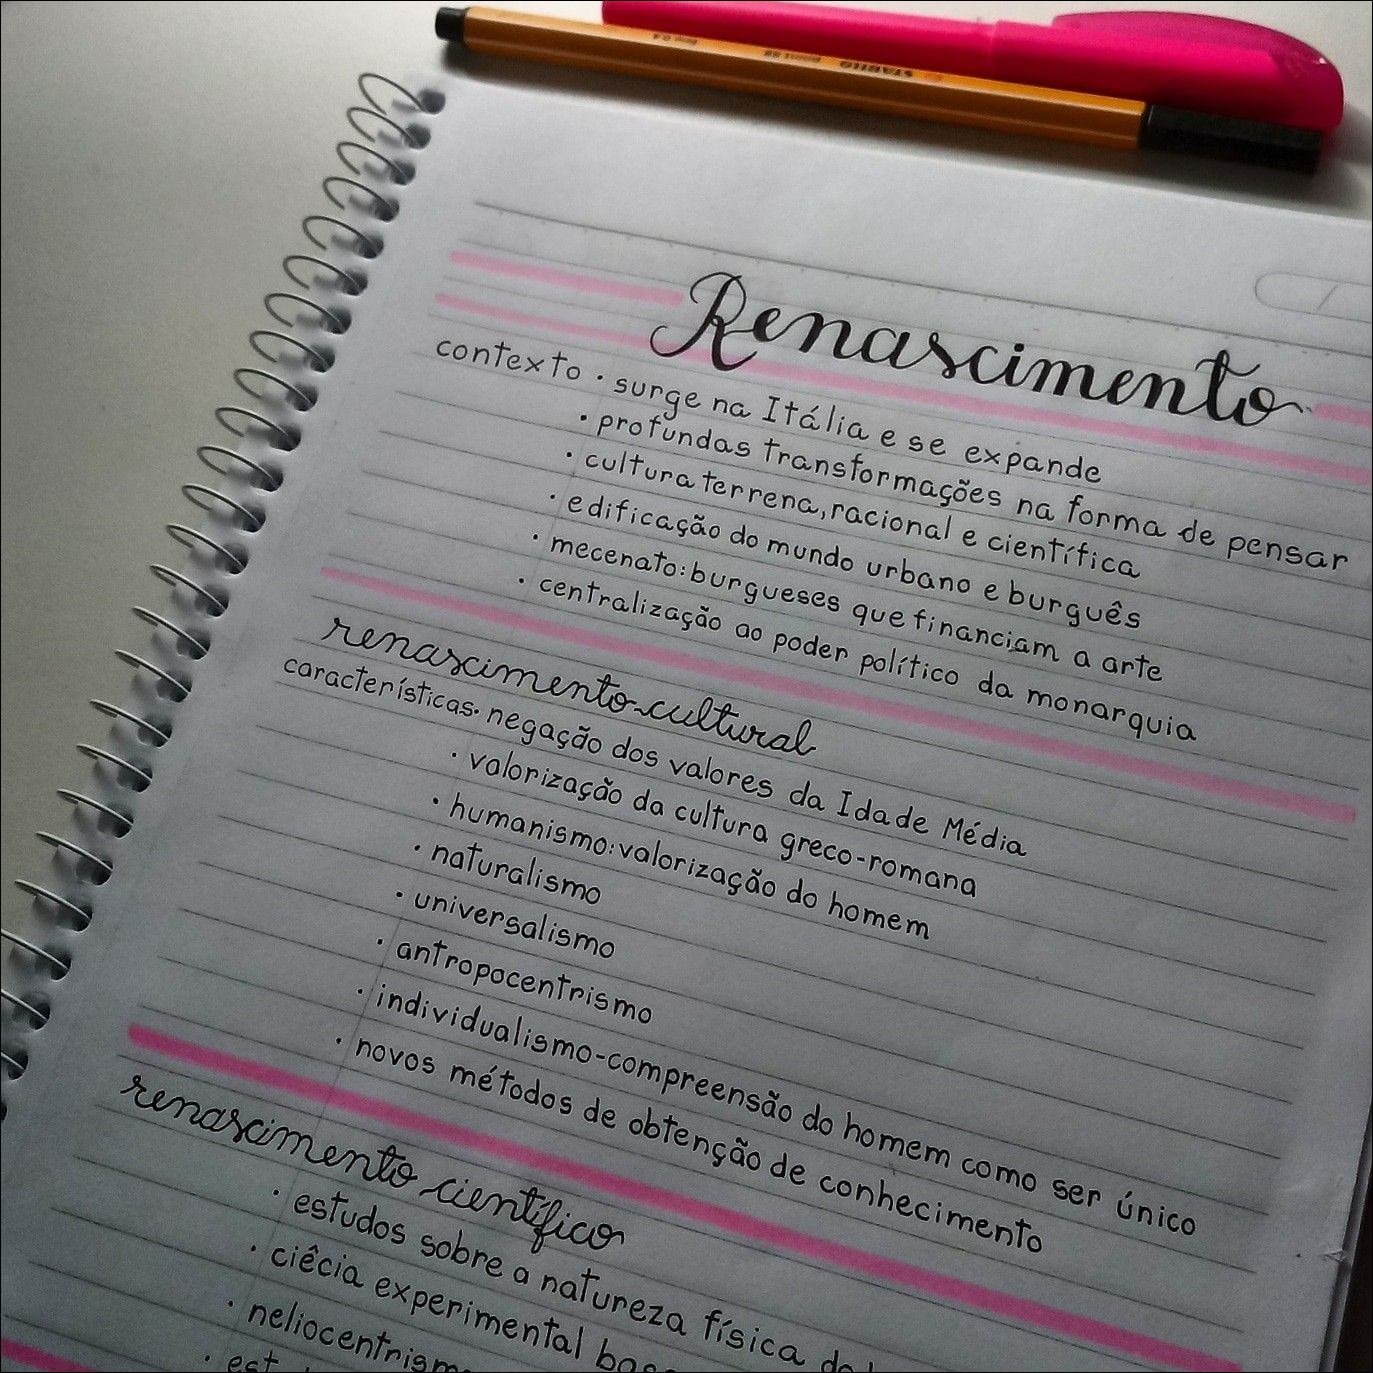 STABILO
point 88
fine 0.4
Renascimento
contexto • surge na Itália e se expande
• profundas transformações na forma de pensar
• cultura terrena, racional e científica
• edificação do mundo urbano e burguês
• mecenato: burgueses que financiam a arte
• centralização ao poder político da monarquia
renascimento cultural
características • negação dos valores da Idade Média
• valorização da cultura greco-romana
• humanismo: valorização do homem
• naturalismo
• universalismo
• antropocentrismo
• individualismo-compreensão do homem como ser único
• novos métodos de obtenção de conhecimento
renascimento científico
• estudos sobre a natureza física
• ciêcia experimental
• neliocentrism